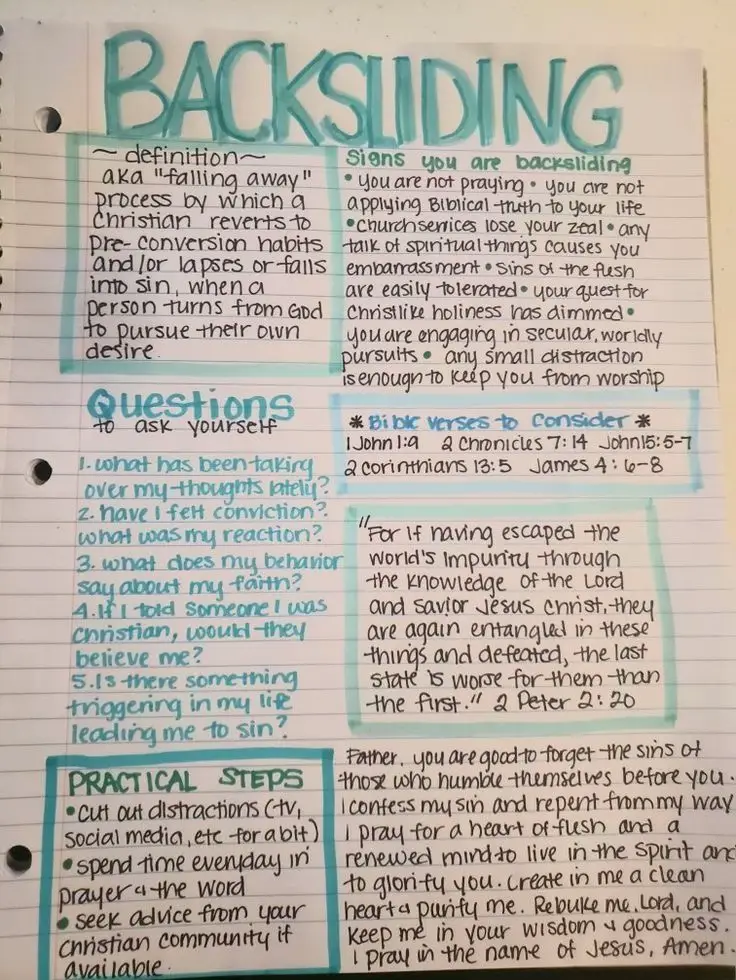 BACKSLIDING
~ definition ~
aka "falling away"
process by which a
Christian reverts to
pre-conversion habits
and/or lapses or falls
into sin, when a
person turns from God
to pursue their own
desire.
Signs you are backsliding
• you are not praying • you are not
applying Biblical truth to your life
• Church services lose your zeal • any
talk of spiritual things causes you
embarrassment • Sins of the flesh
are easily tolerated • your quest for
Christlike holiness has dimmed •
you are engaging in secular, worldly
pursuits • any small distraction
is enough to keep you from worship
Questions
to ask yourself
1. what has been taking
over my thoughts lately?
2. have I felt conviction?
what was my reaction?
3. what does my behavior
say about my faith?
4. If I told someone I was
Christian, would they
believe me?
5. Is there something
triggering in my life
leading me to sin?
* Bible verses to consider *
1 John 1:9 2 Chronicles 7:14 John 15:5-7
2 Corinthians 13:5 James 4:6-8
"For if having escaped the
world's impurity through
the knowledge of the Lord
and savior Jesus Christ, they
are again entangled in these
things and defeated, the last
state is worse for them than
the first." 2 Peter 2:20
PRACTICAL STEPS
• cut out distractions (tv,
social media, etc for a bit)
• spend time everyday in
prayer & the word
• seek advice from your
Christian community if
available.
Father, you are good to forget the sins of
those who humble themselves before you.
I confess my sin and repent from my way
I pray for a heart of flesh and a
renewed mind to live in the Spirit and
to glorify you. Create in me a clean
heart & purify me. Rebuke me, Lord, and
keep me in your wisdom & goodness.
I pray in the name of Jesus, Amen.